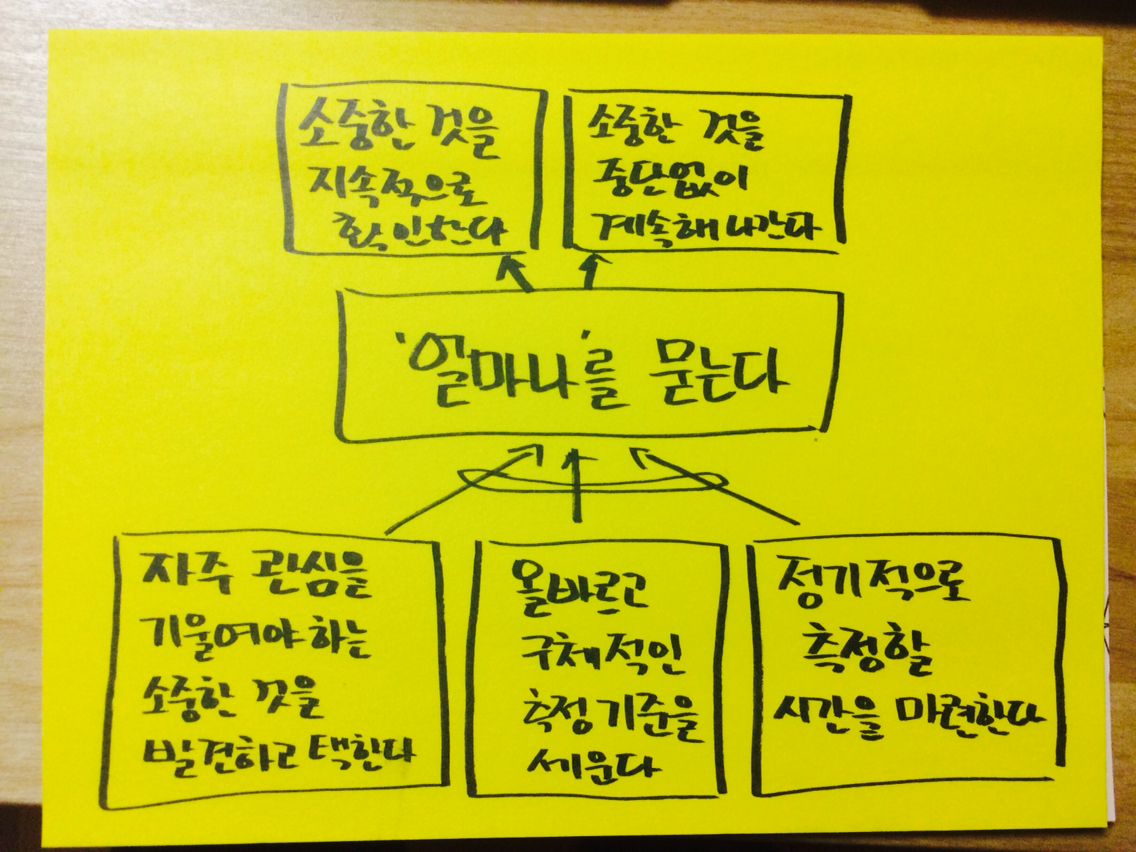 소중한 것을
지속적으로
확인한다
소중한 것을
중단없이
계속해 나간다
'얼마나'를 묻는다
자주 관심을
기울여야 하는
소중한 것을
발견하고 택한다
올바르고
구체적인
측정 기준을
세운다
정기적으로
측정할
시간을 마련한다